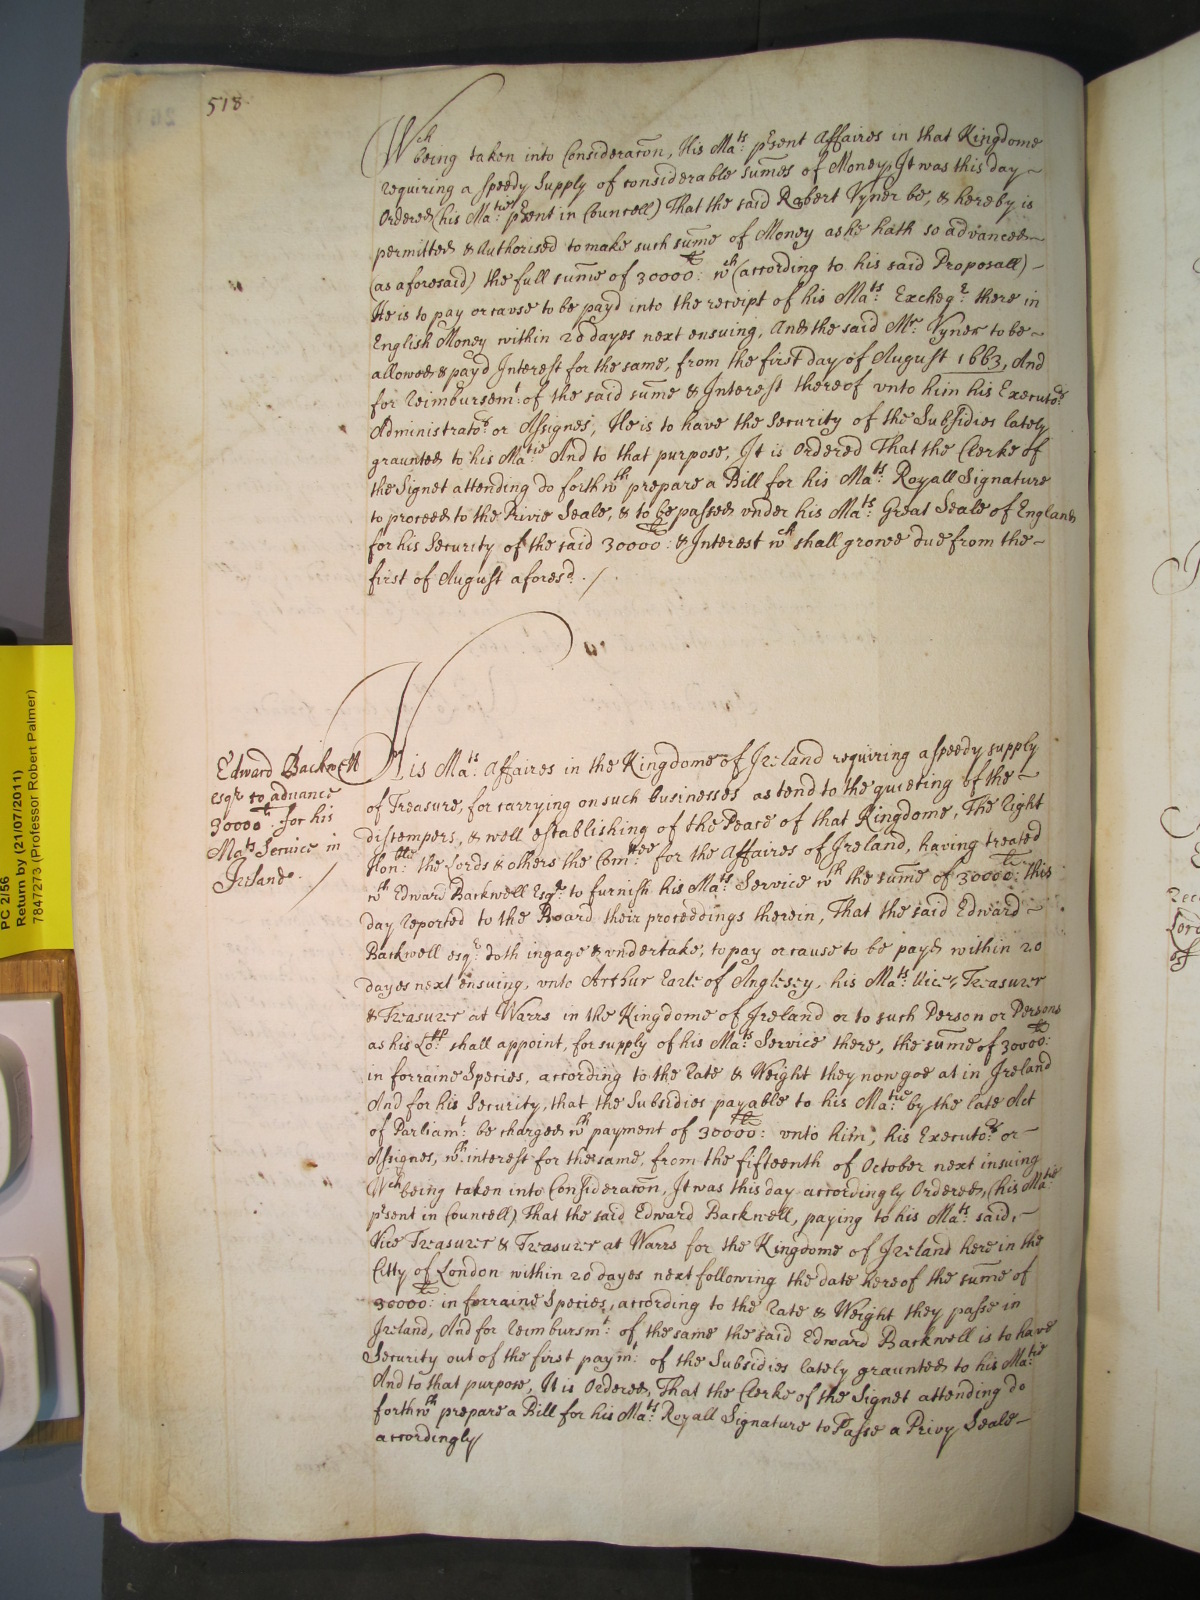 518
Wch
being taken into Consideracõn, His Mats: p'sent Affaires in that Kingdome
requiring a speedy Supply of considerable sum̃es of Money, It was this day ~
Ordered (his Matie: p'sent in Councell) That the said Robert Vyner be, & hereby is
permitted & Authorised to make such sum̃e of Money as he hath so advanced ~
(as aforesaid) the full sum̃e of 30000li: wch (according to his said Proposall) -
He is to pay or cause to be payd into the receipt of his Mats: Excheqr: there in
English Money within 20 dayes next ensuing, And the said Mr. Vyner to be ~
allowed & payd Interest for the same, from the first day of August 1663, And
for Reimbursemt: of the said sum̃e & Interest thereof vnto him his Executors:
Administrators: or Assignes, He is to have the Security of the Subsidies lately
graunted to his Matie: And to that purpose, It is Ordered That the Clerke of
the Signet attending do forthwth prepare a Bill for his Mats: Royall Signature
to proceed to the Privie Seale, & to be passed vnder his Mats: Great Seale of England
for his Security of the said 30000li: & Interest wch shall growe due from the -
first of August aforesd. /
Edward Backwell
esqr to advance
30000li for his
Mats Service in
Ireland. /
His Mats: Affaires in the Kingdome of Ireland requiring a speedy supply
of Treasure, for carrying on such businesses as tend to the quieting of the ~
distempers, & well establishing of the Peace of that Kingdome, The Right
Honble: the Lords & others the Comttee for the Affaires of Ireland, having treated
wth Edward Backwell Esqr: to furnish his Mats: Service wth the sum̃e of 30000li: this
day reported to the Board their proceedings therein, That the said Edward ~
Backwell esqr: doth ingage & vndertake, to pay or cause to be payd within 20
dayes next ensuing, vnto Arthur Earle of Anglesey, his Mats: Vice, Treasurer
& Treasurer at Warrs in the Kingdome of Ireland or to such Person or Persons
as his Lopp: shall appoint, for supply of his Mats: Service there, the sum̃e of 30000li:
in forraine Species, according to the Rate & Weight they now goe at in Ireland
And for his Security, that the Subsidies payable to his Matie: by the late Act
of Parliamt: be charged wth payment of 30000li: vnto him, his Executors: or -
Assignes, wth interest for the same, from the fifteenth of October next insuing
Wch being taken into Consideracõn, It was this day accordingly Ordered, (his Matie:
p'sent in Councell) That the said Edward Backwell, paying to his Mats: said, -
Vice Treasurer & Treasurer at Warrs for the Kingdome of Ireland here in the
Citty of London within 20 dayes next following the date hereof the sum̃e of
30000li: in forraine Species, according to the Rate & Weight they passe in
Ireland, And for Reimbursmt: of the same the said Edward Backwell is to have
Security out of the first paymt: of the Subsidies lately graunted to his Matie:
And to that purpose, It is Ordered, That the Clerke of the Signet attending do
forthwth prepare a Bill for his Mats: Royall Signature to Passe a Privy Seale -
accordingly
PC 2/56
Return by (21/07/2011)
7847273 (Professor Robert Palmer)